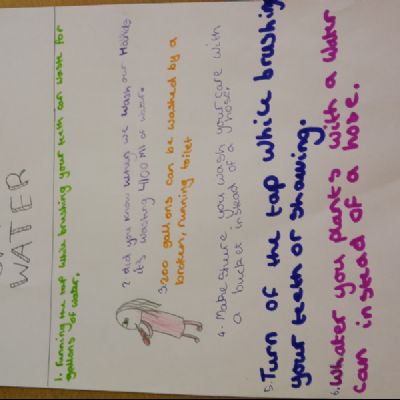 WATER
1. Running the tap while brushing your teeth can waste for
gallons of water.
2 did you know when we wash our Hands
it's washing 4100 Ml of water.
3. 200 gallons can be washed by a
broken, running toilet
4. Make shure you wash your care with
a bucket instead of a hose.
5. Turn of the tap while brushing
your teeth or shaving.
6. Whater you plants with a water
can instead of a hose.